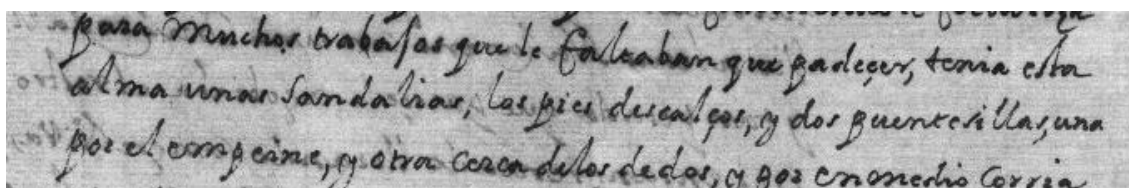 para muchos trabajos que le faltaban que padeçer, tenia esta
alma unas sandalias, los pies descalços, y dos puentesillas, una
por el empeine, y otra cerca de los dedos, y por enmedio corria